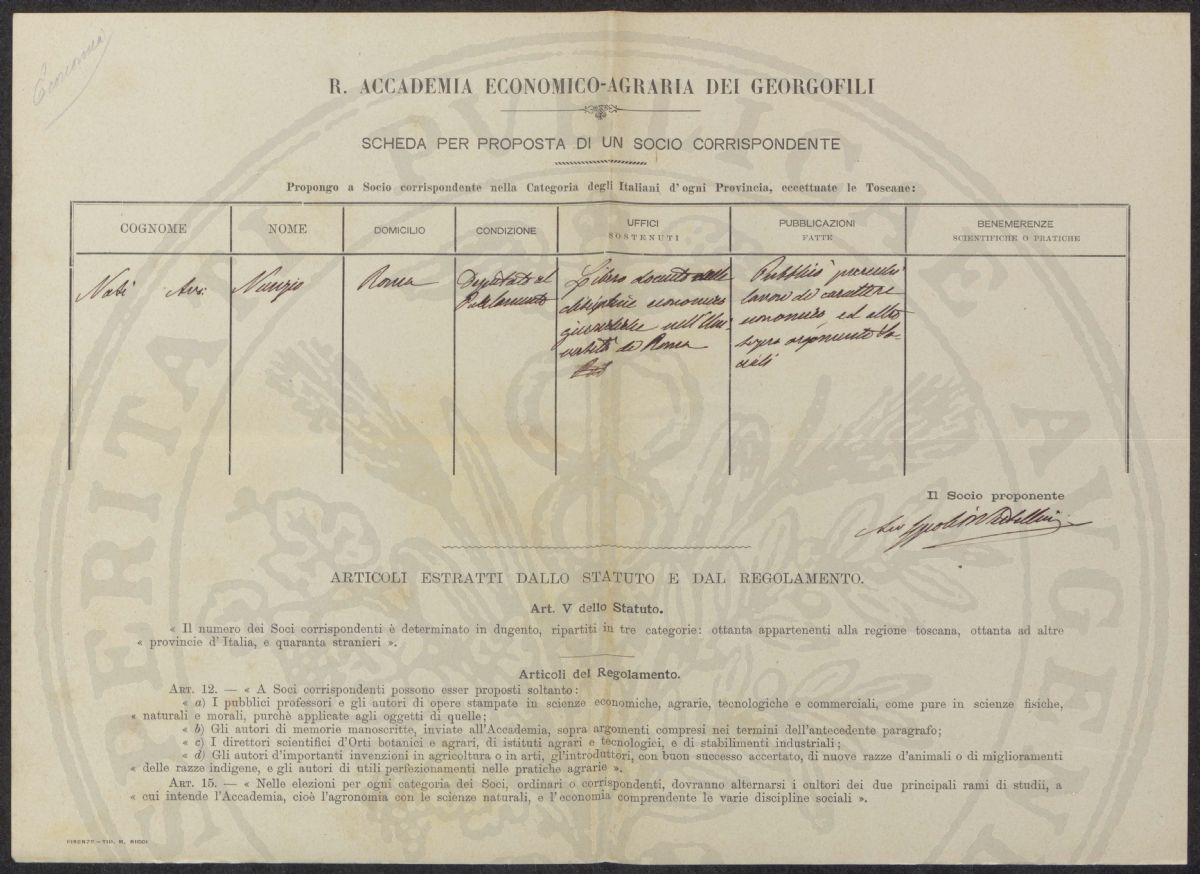 Economia
R. ACCADEMIA ECONOMICO-AGRARIA DEI GEORGOFILI
SCHEDA PER PROPOSTA DI UN SOCIO CORRISPONDENTE
Propongo a Socio corrispondente nella Categoria degli Italiani d'ogni Provincia, eccettuate le Toscane:
COGNOME
NOME
DOMICILIO
CONDIZIONE
UFFICI
SOSTENUTI
PUBBLICAZIONI
FATTE
BENEMERENZE
SCIENTIFICHE O PRATICHE
Nasi Avv.
Nunzio
Roma
Deputato al
Parlamento
Libero docente delle
discipline economico
giuridiche nell'Uni-
versità di Roma
Pubblicò parecchi
lavori di carattere
economico ed altri
sopra argomenti so-
ciali
Il Socio proponente
Avv
ARTICOLI ESTRATTI DALLO STATUTO E DAL REGOLAMENTO.
Art. V dello Statuto.
« Il numero dei Soci corrispondenti è determinato in dugento, ripartiti in tre categorie: ottanta appartenenti alla regione toscana, ottanta ad altre
« provincie d'Italia, e quaranta stranieri ».
Articoli del Regolamento.
ART. 12. — « A Soci corrispondenti possono esser proposti soltanto:
« a) I pubblici professori e gli autori di opere stampate in scienze economiche, agrarie, tecnologiche e commerciali, come pure in scienze fisiche,
« naturali e morali, purchè applicate agli oggetti di quelle;
« b) Gli autori di memorie manoscritte, inviate all'Accademia, sopra argomenti compresi nei termini dell'antecedente paragrafo;
« c) I direttori scientifici d'Orti botanici e agrari, di istituti agrari e tecnologici, e di stabilimenti industriali;
« d) Gli autori d'importanti invenzioni in agricoltura o in arti, gl'introduttori, con buon successo accertato, di nuove razze d'animali o di miglioramenti
« delle razze indigene, e gli autori di utili perfezionamenti nelle pratiche agrarie ».
ART. 15. — « Nelle elezioni per ogni categoria dei Soci, ordinari o corrispondenti, dovranno alternarsi i cultori dei due principali rami di studii, a
« cui intende l'Accademia, cioè l'agronomia con le scienze naturali, e l'economia comprendente le varie discipline sociali ».
FIRENZE - TIP. M. RICCI
PROSPERITATI PUBLICAE AVGENDAE